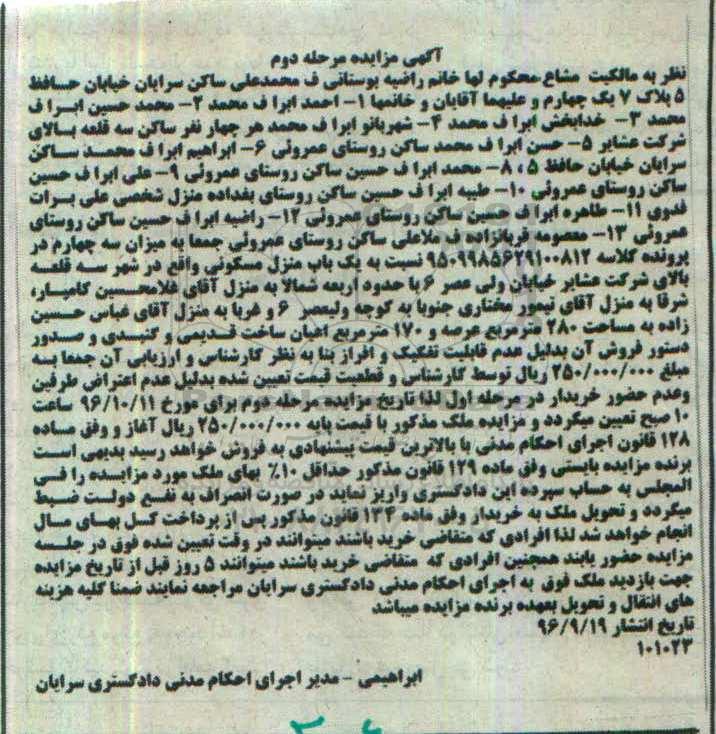 آگهی مزایده مرحله دوم
نظر به مالکیت مشاع محکوم لها خانم راضیه بوستانی ف محمدعلی ساکن سرایان خیابان حافظ
۵ پلاک ۷ یک چهارم و علیهما آقایان و خانمها ۱- احمد ابرا ف محمد ۲- محمد حسین ابرا ف
محمد ۳- خدابخش ابرا ف محمد ۴- شهربانو ابرا ف محمد هر چهار نفر ساکن سه قلعه بالای
شرکت عشایر ۵- حسن ابرا ف محمد ساکن روستای عمروئی ۶- ابراهیم ابرا ف محمد ساکن
سرایان خیابان حافظ ۵ ؛ ۸- محمد ابرا ف حسین ساکن روستای عمروئی ۹- علی ابرا ف حسین
ساکن روستای عمروئی ۱۰- طیبه ابرا ف حسین ساکن روستای بغداده منزل شخصی علی برات
فدوی ۱۱- طاهره ابرا ف حسین ساکن روستای عمروئی ۱۲- راضیه ابرا ف حسین ساکن روستای
عمروئی ۱۳- معصومه قربانزاده ف ملاعلی ساکن روستای عمروئی جمعا به میزان سه چهارم در
پرونده کلاسه ۹۵۰۹۹۸۵۶۲۹۱۰۰۸۱۲ نسبت به یک باب منزل مسکونی واقع در شهر سه قلعه
بالای شرکت عشایر خیابان ولی عصر ۶ با حدود اربعه شمالا به منزل آقای غلامحسین کامیار،
شرقا به منزل آقای تیمور مختاری جنوبا به کوچه ولیعصر ۶ و غربا به منزل آقای عباس حسین
زاده به مساحت ۲۸۰ مترمربع عرصه و ۱۷۰ مترمربع اعیان ساخت قدیمی و گنبدی و صدور
دستور فروش آن بدلیل عدم قابلیت تفکیک و افراز بنا به نظر کارشناس و ارزیابی آن جمعا به
مبلغ ۲۵۰/۰۰۰/۰۰۰ ریال توسط کارشناس و قطعیت قیمت تعیین شده بدلیل عدم اعتراض طرفین
وعدم حضور خریدار در مرحله اول لذا تاریخ مزایده مرحله دوم برای مورخ ۹۶/۱۰/۱۱ ساعت
۱۰ صبح تعیین میگردد و مزایده ملک مذکور با قیمت پایه ۲۵۰/۰۰۰/۰۰۰ ریال آغاز و وفق ماده
۱۲۸ قانون اجرای احکام مدنی با بالاترین قیمت پیشنهادی به فروش خواهد رسید بدیهی است
برنده مزایده بایستی وفق ماده ۱۲۹ قانون مذکور حداقل ۱۰٪ بهای ملک مورد مزایده را فی
المجلس به حساب سپرده این دادگستری واریز نماید در صورت انصراف به نفع دولت ضبط
میگردد و تحویل ملک به خریدار وفق ماده ۱۳۴ قانون مذکور پس از پرداخت کسل بهای مال
انجام خواهد شد لذا افرادی که متقاضی خرید باشند میتوانند در وقت تعیین شده فوق در جلسه
مزایده حضور یابند همچنین افرادی که متقاضی خرید باشند میتوانند ۵ روز قبل از تاریخ مزایده
جهت بازدید ملک فوق به اجرای احکام مدنی دادگستری سرایان مراجعه نمایند ضمنا کلیه هزینه
های انتقال و تحویل بعهده برنده مزایده میباشد
تاریخ انتشار ۹۶/۹/۱۹
۱۰۱۰۲۳
ابراهیمی - مدیر اجرای احکام مدنی دادگستری سرایان